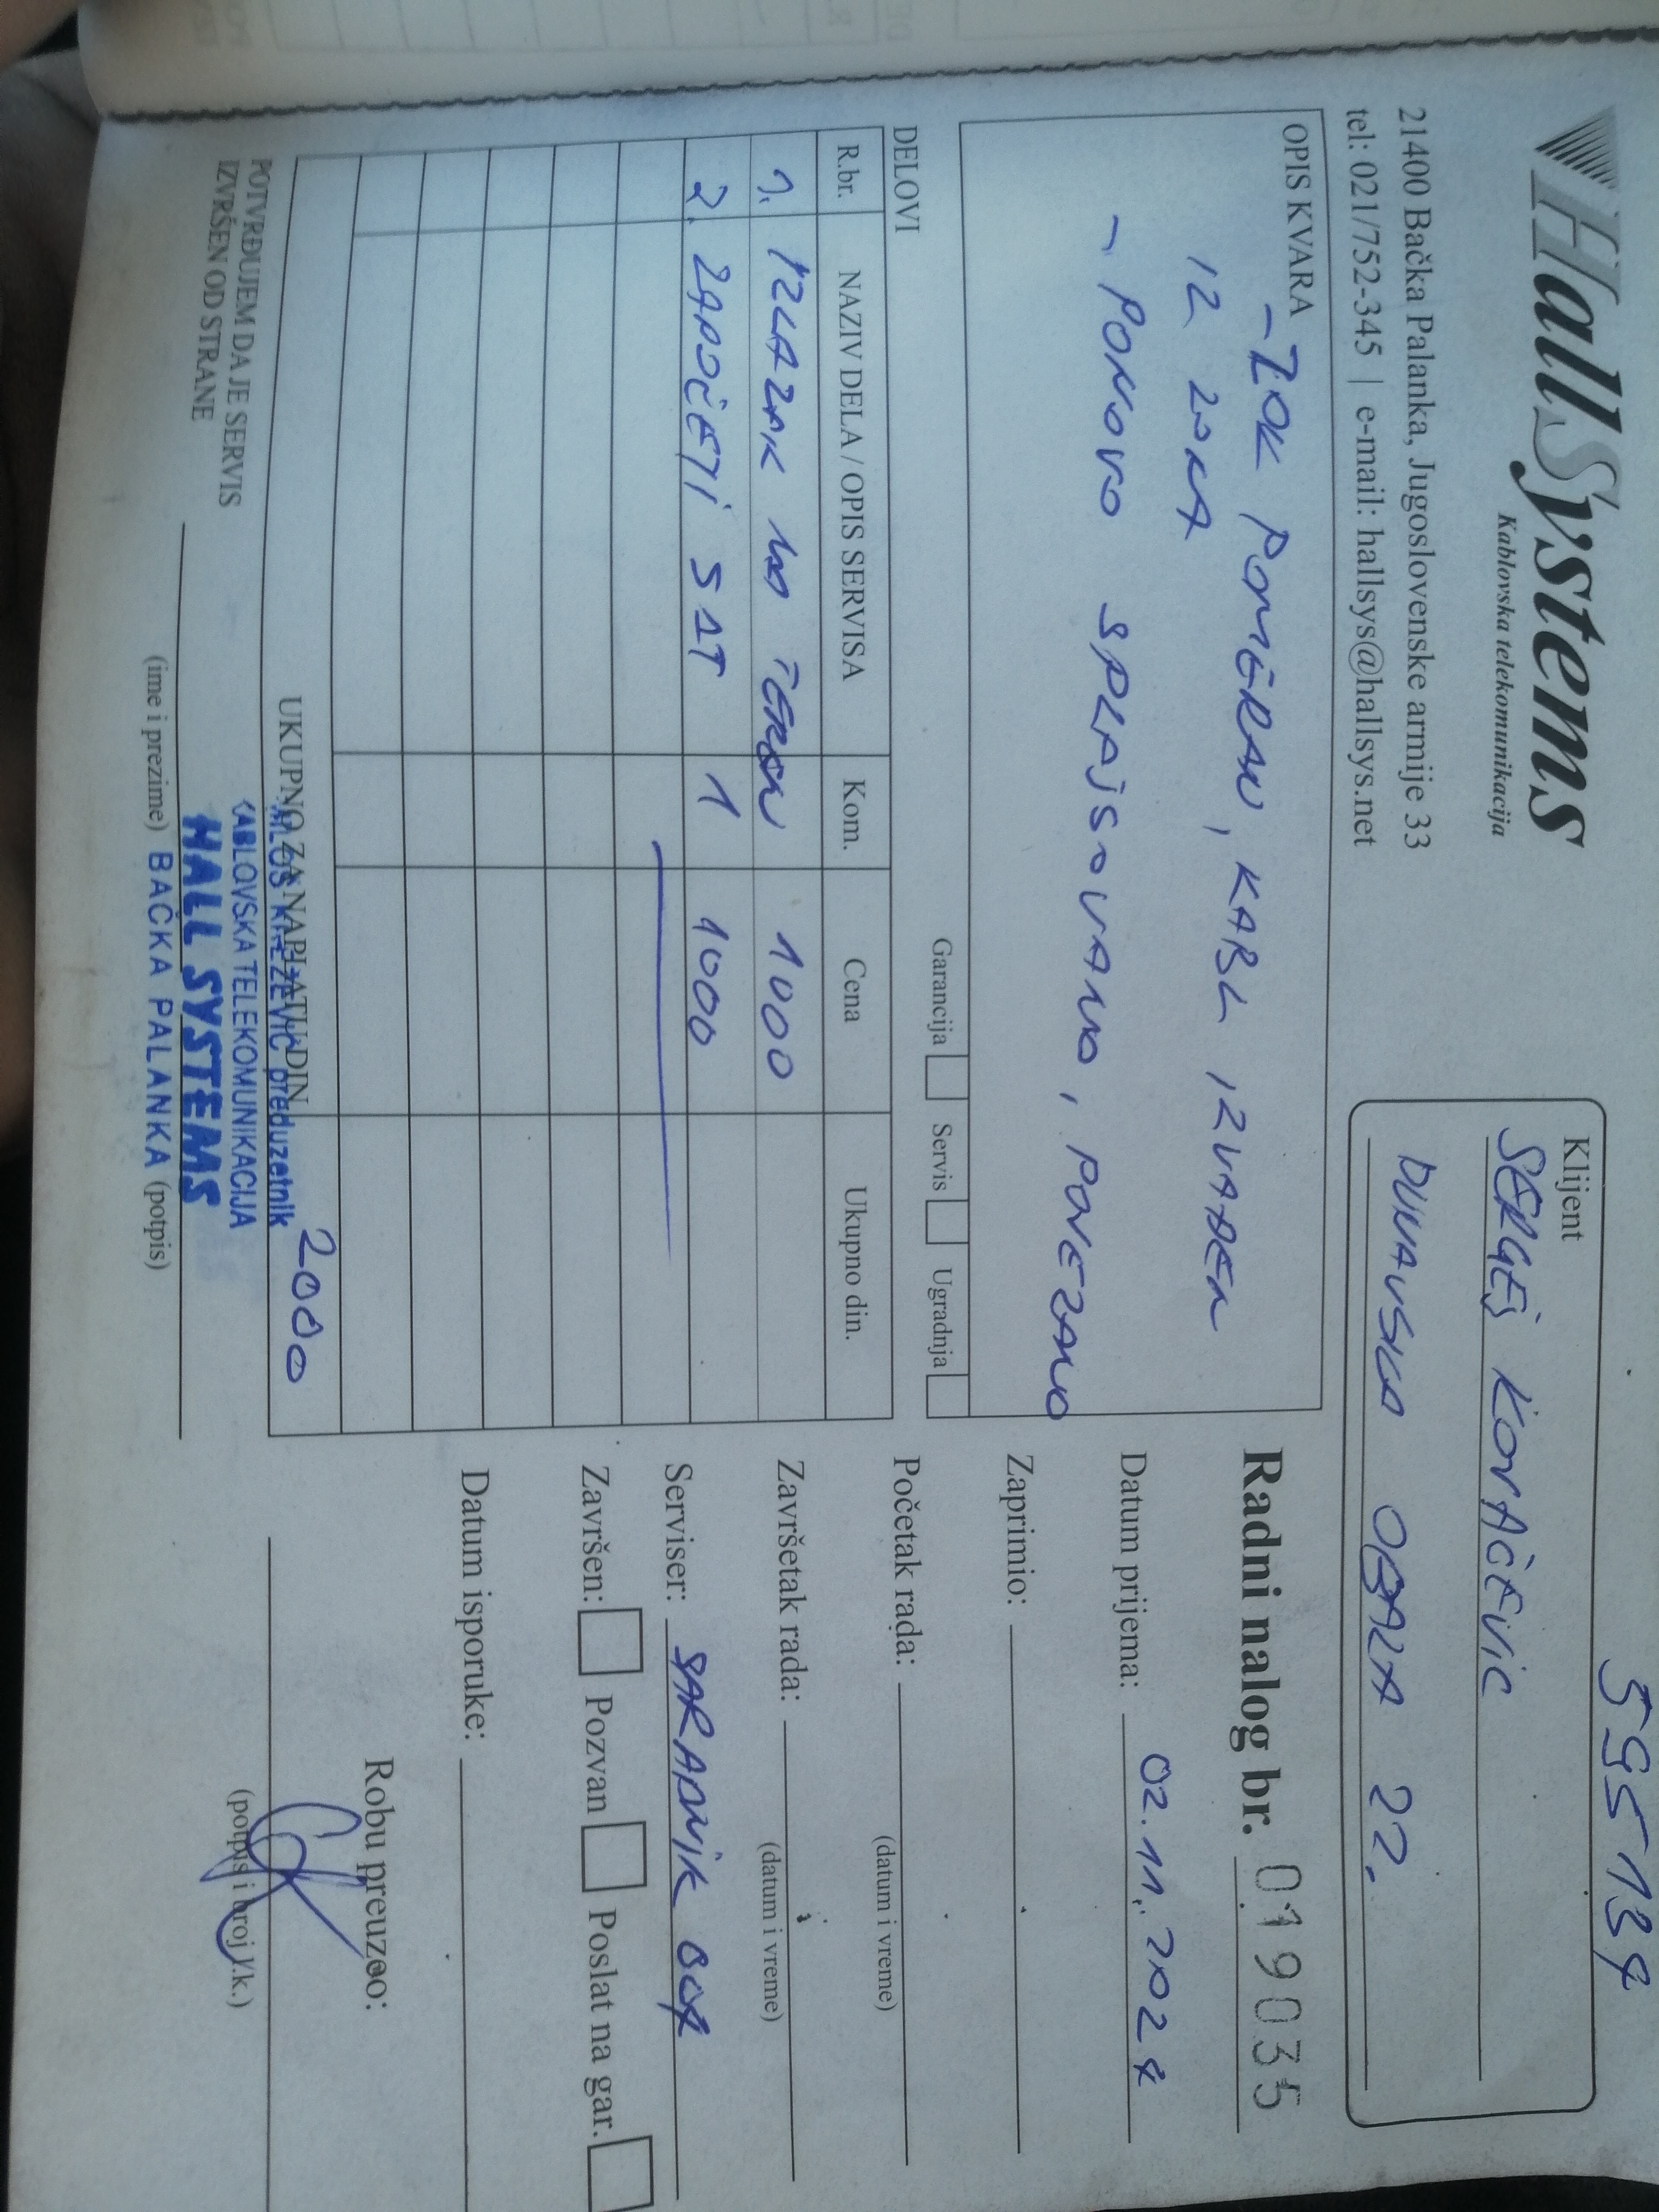 595134
HallSystems
Kablovska telekomunikacija
21400 Bačka Palanka, Jugoslovenske armije 33
tel: 021/752-345 | e-mail: hallsys@hallsys.net
Klijent
SERGEJ KOVAČEVIC
DUNAVSKA OBALA 22.
OPIS KVARA
- ZOK POMERAN, KABL IZVAĐEN
IZ ZOKA
- PONOVO SPLAJSOVANO, POVEZANO
Garancija Servis Ugradnja
DELOVI
R.br. NAZIV DELA / OPIS SERVISA Kom. Cena Ukupno din.
1. IZLAZAK NA TEREN 1000
2. ZAPOČETI SAT 1 1000
UKUPNO ZA NAPLATU DIN. 2000
POTVRĐUJEM DA JE SERVIS
IZVRŠEN OD STRANE
(ime i prezime) (potpis)
preduzetnik
KABLOVSKA TELEKOMUNIKACIJA
HALL SYSTEMS
BAČKA PALANKA
Radni nalog br. 019035
Datum prijema: 02.11.2024
Zaprimio:
Početak rada:
(datum i vreme)
Završetak rada:
(datum i vreme)
Serviser: SARADNIK
Završen: Pozvan Poslat na gar.
Datum isporuke:
Robu preuzeo:
(potpis i broj l.k.)